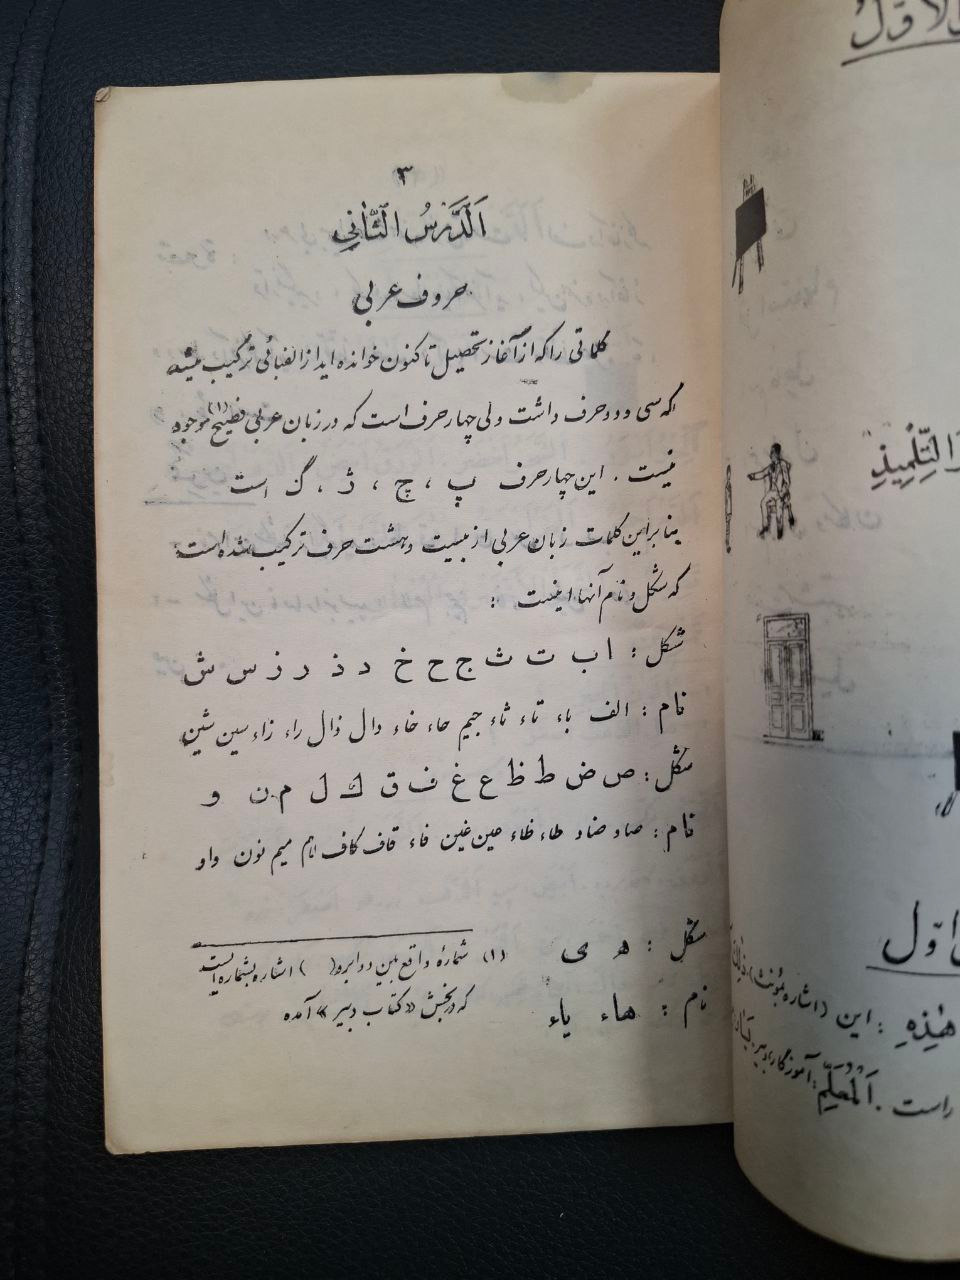 ٣
اَلدَّرْسُ الثّاني
حروف عربی
کلماتی را که از آغاز تحصیل تاکنون خوانده اید از الفبائی ترکیب میشد
که سی و دو حرف داشت ولی چهار حرف است که در زبان عربی فصیح (۱) موجود
نیست . این چهار حرف پ ، چ ، ژ ، گ است
بنابراین کلمات زبان عربی از بیست و هشت حرف ترکیب شده است
که شکل و نام آنها اینست :
شکل : ا ب ت ث ج ح خ د ذ ر ز س ش
نام : الف باء تاء ثاء جیم حاء خاء دال ذال راء زاء سین شین
شکل : ص ض ط ظ ع غ ف ق ك ل م ن و
نام : صاد ضاد طاء ظاء عین غین فاء قاف کاف لام میم نون واو
شکل : ه ی
نام : هاء یاء
(۱) شمارهٔ واقع بین دو ابرو ( ) اشاره بشماره ایست
که در بخش «کتاب دبیر» آمده
الاوّلُ
التِّلْمِيذِ
اوّل
هٰذِهِ : این (اشاره بمؤنث)
اَلْمُعَلِّمُ : آموزگار، دبیر
راست .